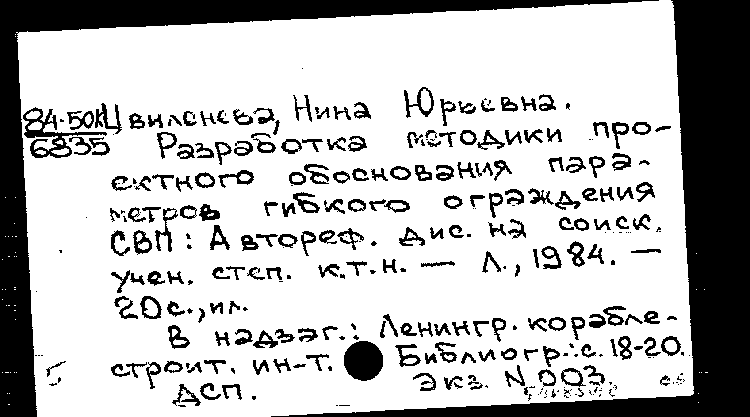 84-50к Цвиленева, Нина Юрьевна.
6835 Разработка методики про-
ектного обоснования пара-
метров гибкого ограждения
СВП: Автореф. дис. на соиск.
учен. степ. к.т.н. — Л., 1984. —
20с., ил.
В надзаг.: Ленингр. корабле-
строит. ин-т. Библиогр.: с. 18-20.
ДСП. Экз. N 003.